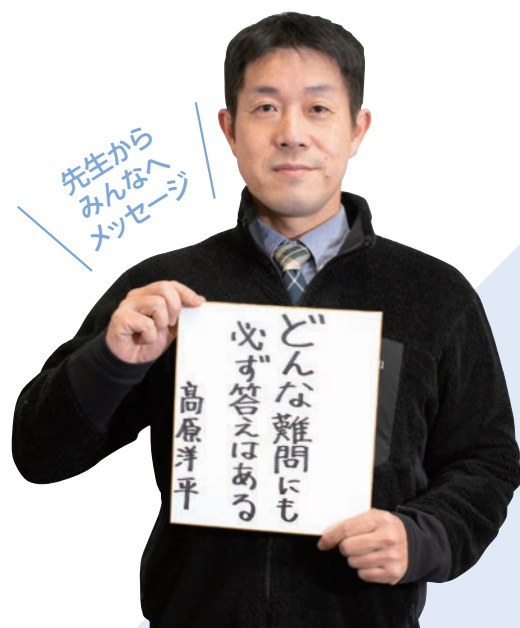 先生から
みんなへ
メッセージ
どんな難問にも
必ず答えはある
髙原洋平